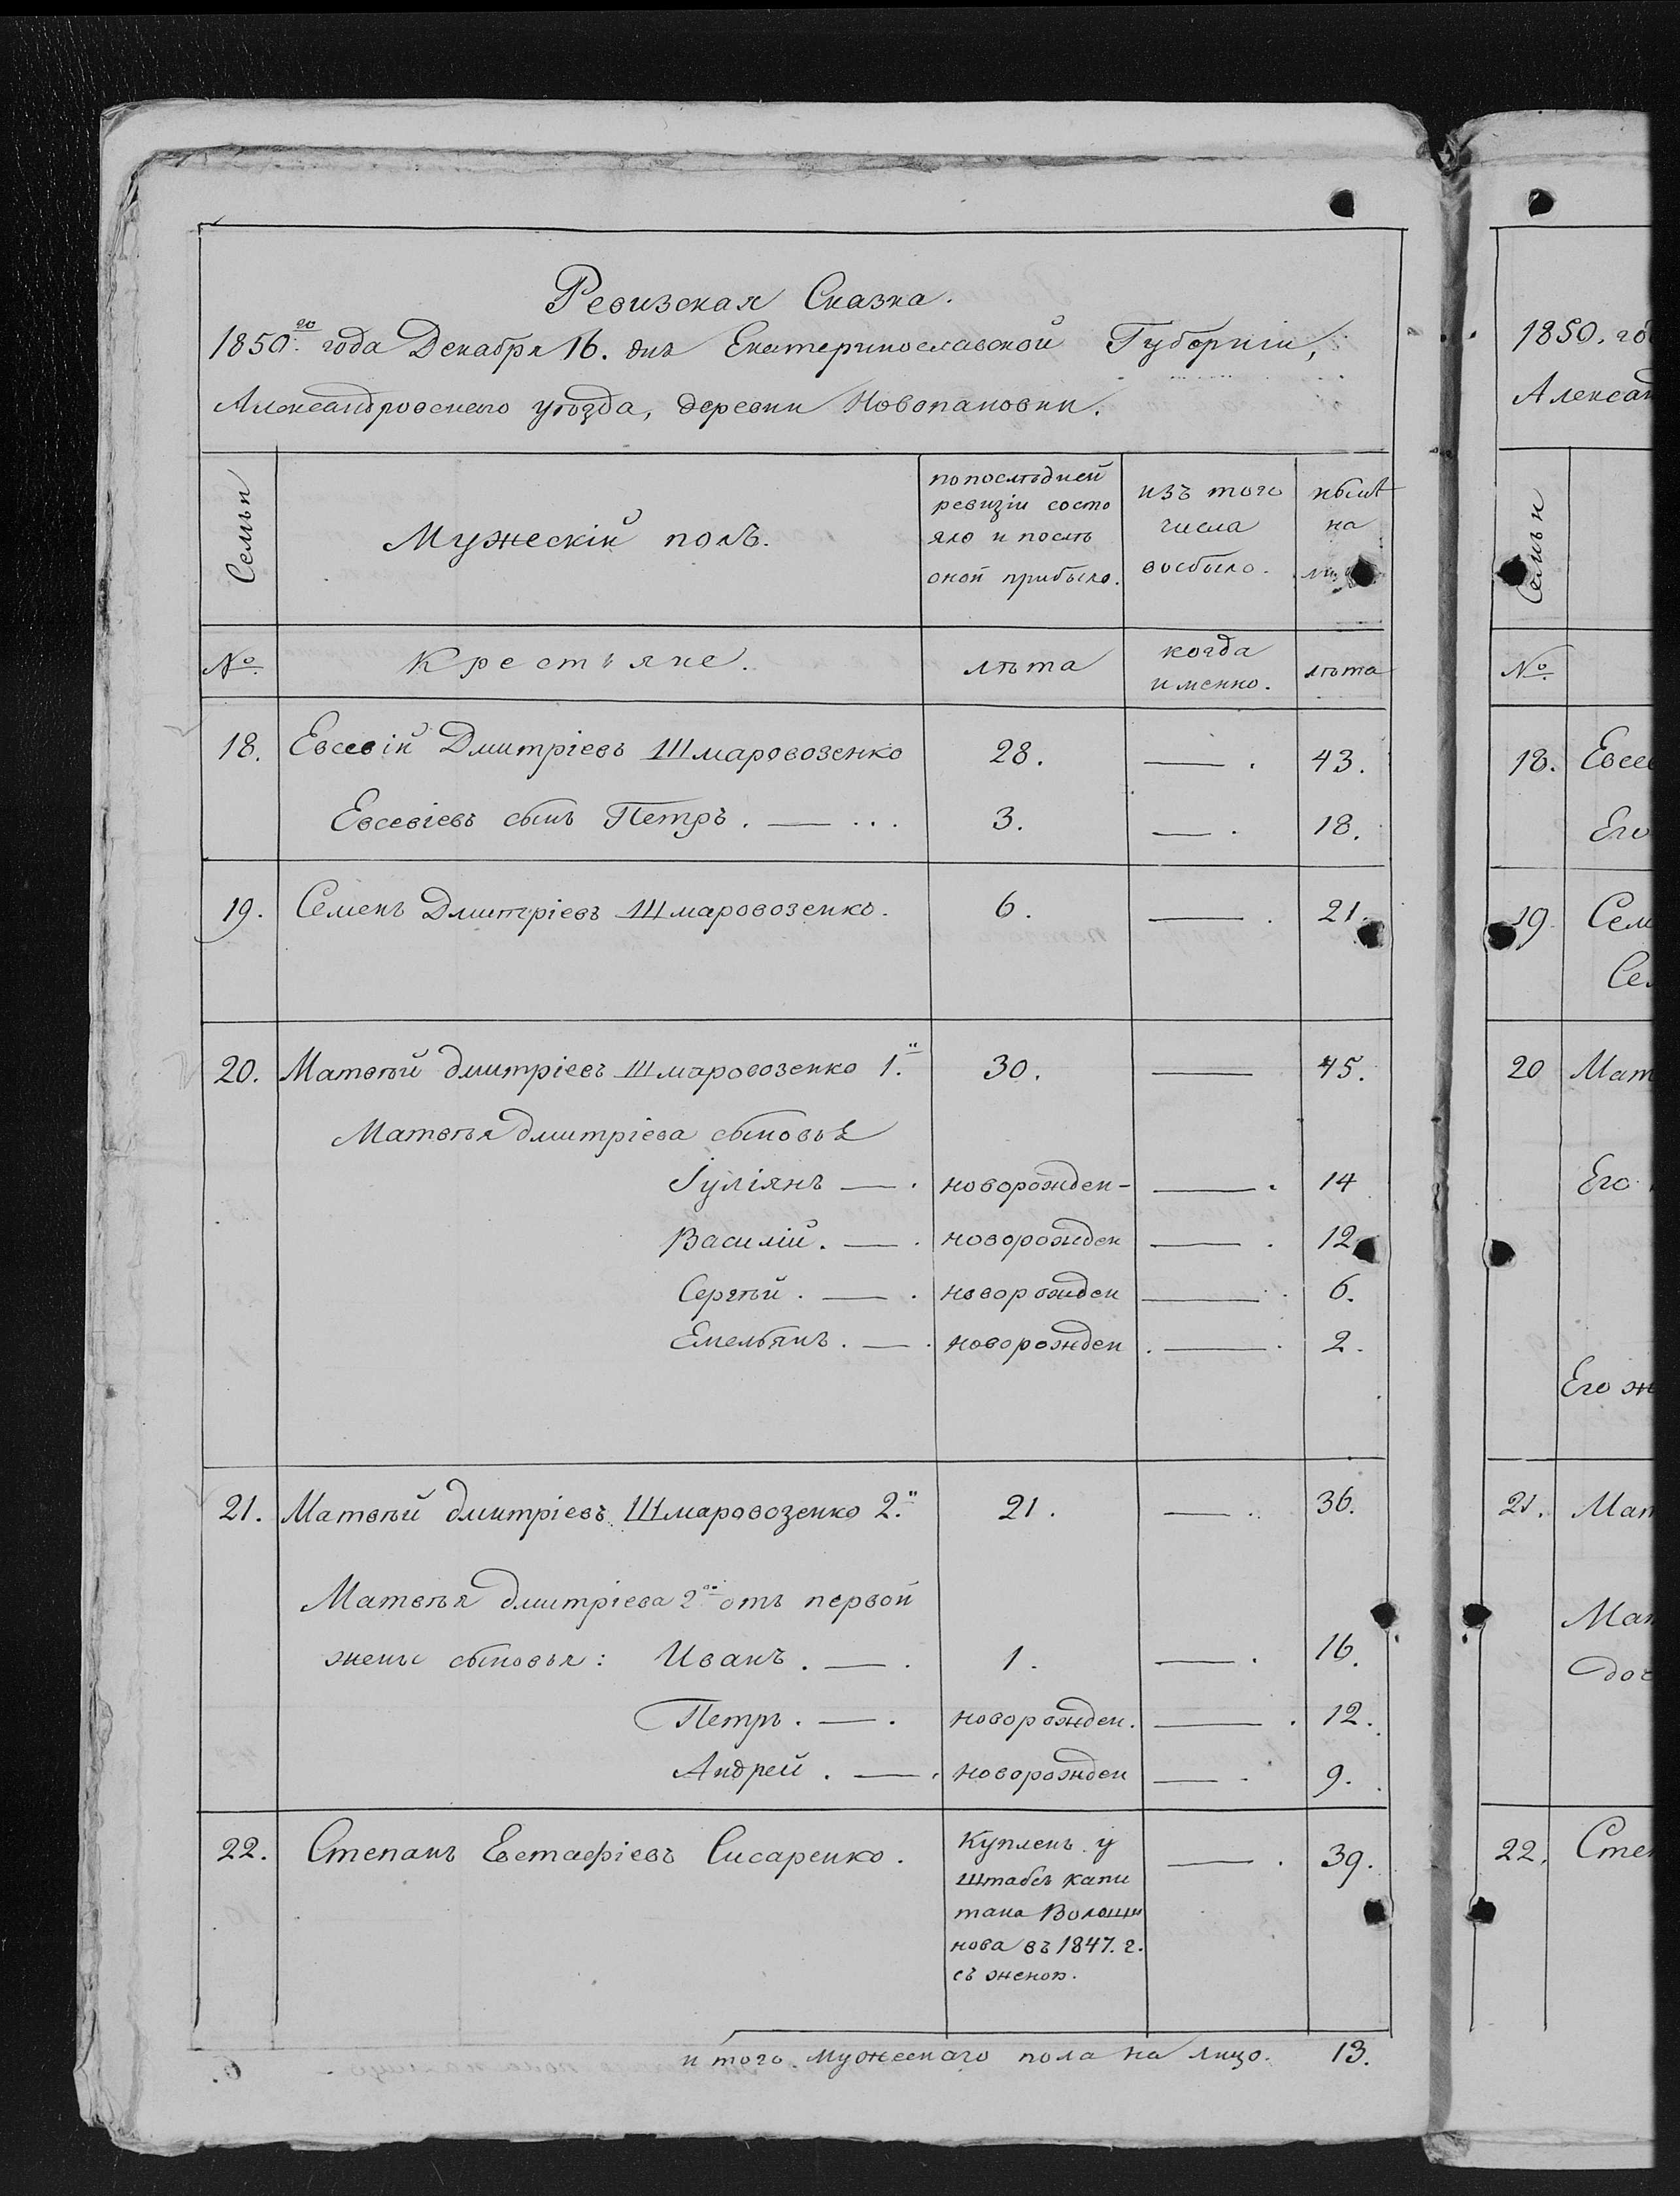 Ревизская Сказка.
1850го года Декабря 16. дня Екатеринославской Губерніи,
Александровскаго уѣзда, деревни Новопановки.
Семьи
Мужескій полъ.
попослѣдней
ревизіи состо
яло и послѣ
оной прибыло.
изъ того
числа
выбыло.
нынѣ
на
№.
Крестьяне.
лѣта
когда
именно.
лѣта
18. Евсевій Дмитріевъ Шмаровозенко 28. — . 43.
Евсевіевъ сынъ Петръ . — ... 3. — . 18.
19. Семенъ Дмитріевъ Шмаровозенко. 6. — . 21.
20. Матвѣй Дмитріевъ Шмаровозенко 1.й 30. — 45.
Матвѣя Дмитріева сыновья
Іуліянъ — . новорожден- — . 14
Василій . — . новорожден — . 12
Сергѣй . — . новорожден — . 6.
Емельянъ . — . новорожден . — . 2.
21. Матвѣй Дмитріевъ Шмаровозенко 2.й 21. — .. 36.
Матвѣя Дмитріева 2го отъ первой
жены сыновья: Иванъ . — . 1. — . 16.
Петръ . — . новорожден. — . 12.
Андрей . — . новорожден — . 9.
22. Степанъ Евстафіевъ Сисаренко. Купленъ у — . 39.
Штабсъ капи
тана Волоши
нова въ 1847. г.
съ женой.
итого. Мужескаго пола на лицо. 13.
1850. го
Алексан
Семьи
№.
18. Евсе
Его
19 Сем
Се
20 Мат
Его
Его ж
21. Мат
Мат
доч
22. Сте